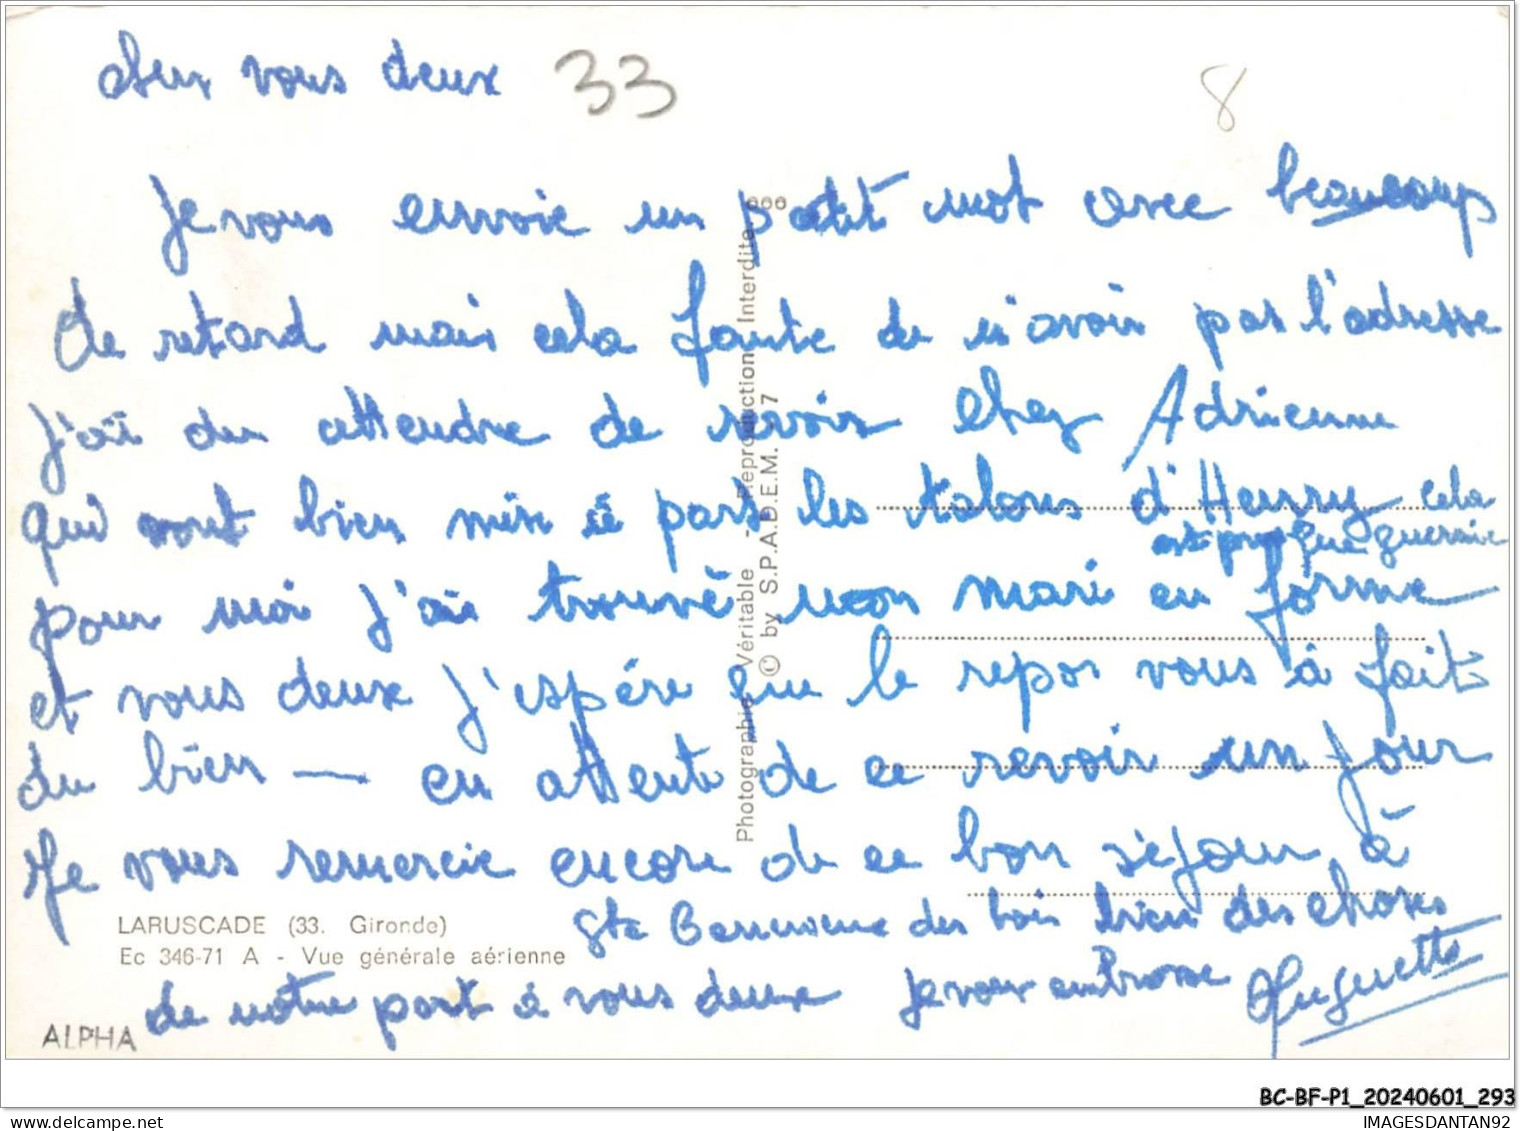 cher vous deux 33
8
Je vous envoie un petit mot avec beaucoup
de retard mais cela faute de n'avoir pas l'adresse
j'ai du attendre de revoir chez Adrienne
qui vont bien mis à part les talons d'Henry cela
est presque guerrie
pour moi j'ai trouvé mon mari en forme
et vous deux j'espére que le repos vous à fait
du bien — en attente de ce revoir un jour
Je vous remercie encore de ce bon séjour à
Ste des bois bien des choses
de notre part à vous deux je vous embrasse Huguette
LARUSCADE (33. Gironde)
Ec 346-71 A - Vue générale aérienne
ALPHA
Photographie Véritable - Reproduction Interdite.
© by S.P.A.D.E.M. 7
BC-BF-P1_20240601_293
www.delcampe.net
IMAGESDANTAN92